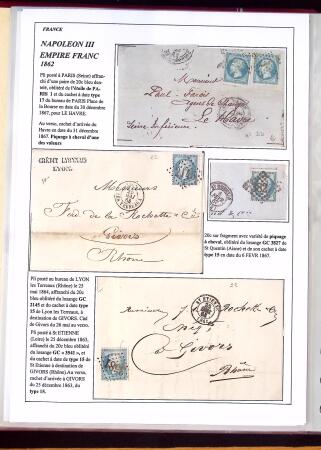 FRANCK
NAPOLEON III
EMPIRE FRANC
1862
Pli posté à PARIS (Seine) affran-
chi d'une paire de 20c bleu den-
telé, oblitéré de l'étoile de PA-
RIS 1 et du cachet à date type
17 du bureau de PARIS Place de
la Bourse en date du 30 décembre
1867, pour LE HAVRE.
Au verso, cachet d'arrivée du
Havre en date du 31 décembre
1867. Piquage à cheval d'une
des valeurs
Monsieur
Le Havre
Seine Inférieure
CRÉDIT LYONNAIS
LYON
22
Messieurs
Fco de la Rochette & Cie
Givors
Rhône
20c sur fragment avec variété de piquage
à cheval, oblitéré du losange GC 3827 de
St Quentin (Aisne) et de son cachet à date
type 15 en date du 6 FEVR 1867.
Pli posté au bureau de LYON
les Terreaux (Rhône) le 25
mai 1864, affranchi du 20c
bleu oblitéré du losange GC
2145 et du cachet à date type
15 de Lyon les Terreaux, à
destination de GIVORS. Càd
de Givors du 28 mai au verso.
Pli posté à St ETIENNE
(Loire) le 25 décembre 1863,
affranchi du 20c bleu oblitéré
du losange GC « 3581 », et du
cachet à date type 15 de
St Etienne à destination de
GIVORS (Rhône) Au verso,
cachet d'arrivée à GIVORS
du 25 décembre 1863, du
type 15.
22
à Givors
Rhône